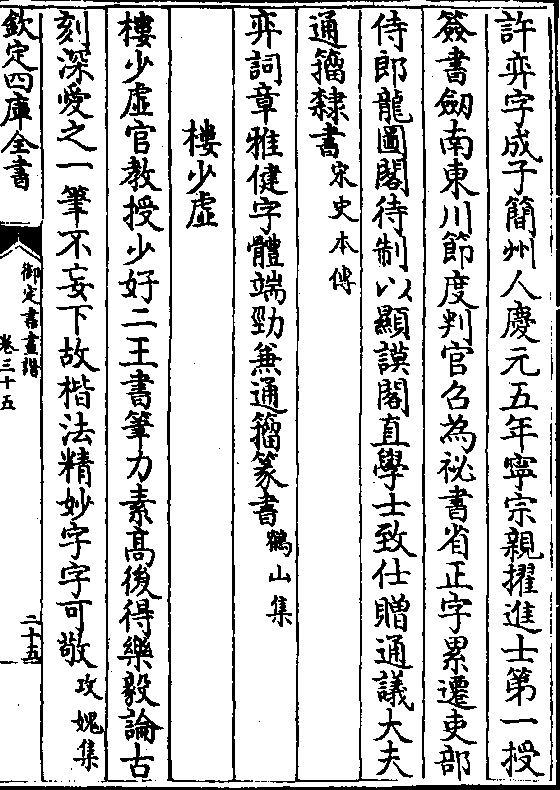 許弈字成子簡州人慶元五年寧宗親擢進士第一授
簽書劒南東川節度判官召為祕書省正字累遷吏部
侍郎龍圖閣待制以顯謨閣直學士致仕贈通議大夫
通籀隸書宋史本傳
弈詞章雅健字體端勁兼通籀篆書鶴山集
樓少虛
樓少虛官教授少好二王書筆力素高後得樂毅論古
刻深愛之一筆不妄下故楷法精妙字字可敬攻媿集
欽定四庫全書
御定書畫譜
卷三十五
二十五